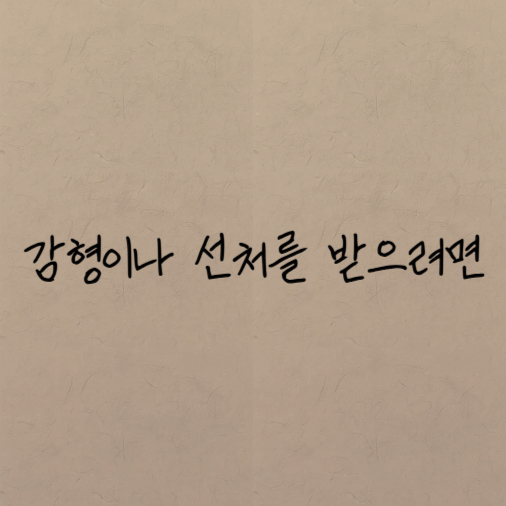 감형이나 선처를 받으려면